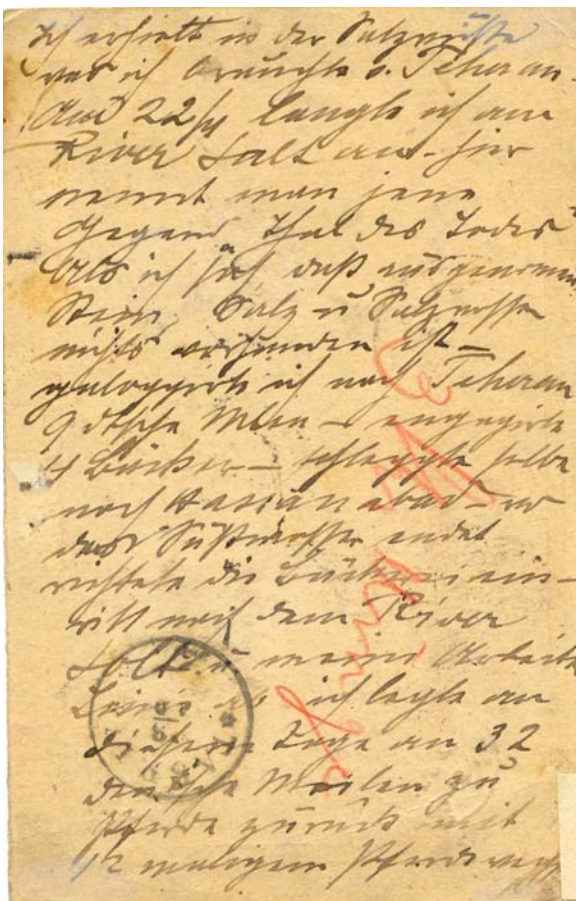 Ich erhielt in der Salzwüste
was ich brauchte v. Teheran.
Am 22/4 langte ich am
River Salt an - hier
nennt man jene
Gegend Thal des Todes
Als ich sah daß ausgenommen
Stein, Salz u Salzwasser
nichts vorhanden ist -
galoppirte ich nach Teheran
9 dtsche Meilen - engagirte
4 Bäcker - schleppte selbe
nach Hassanabad - wo
das Süßwasser endet
richtete die Bäckerei ein -
ritt nach dem River
Salt u meine Arbeits
Linie ab ich legte an
diesem Tage an 32
deutsche Meilen zu
Pferde zurück mit
12 maligem Pferdewechs